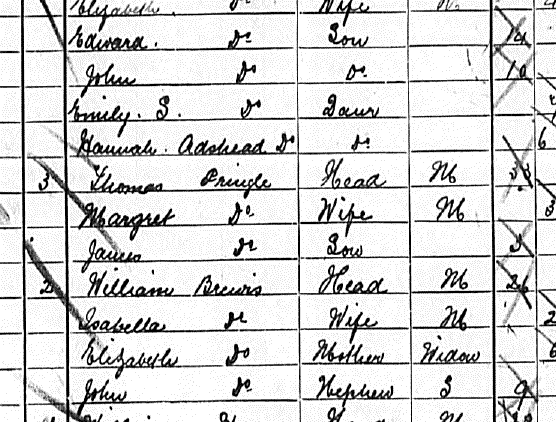 Elizabeth. Do Wife M
Edward. Do Son 14
John Do Do 10
Emily. S. Do Daur
Hannah. Adshead Do Do 6
3 Thomas Pringle Head M 33
Margret Do Wife M 3
James Do Son 3
2 William Brewis Head M 26
Isabella Do Wife M 2
Elizabeth Do Mother Widow 6
John Do Nephew S 9
M